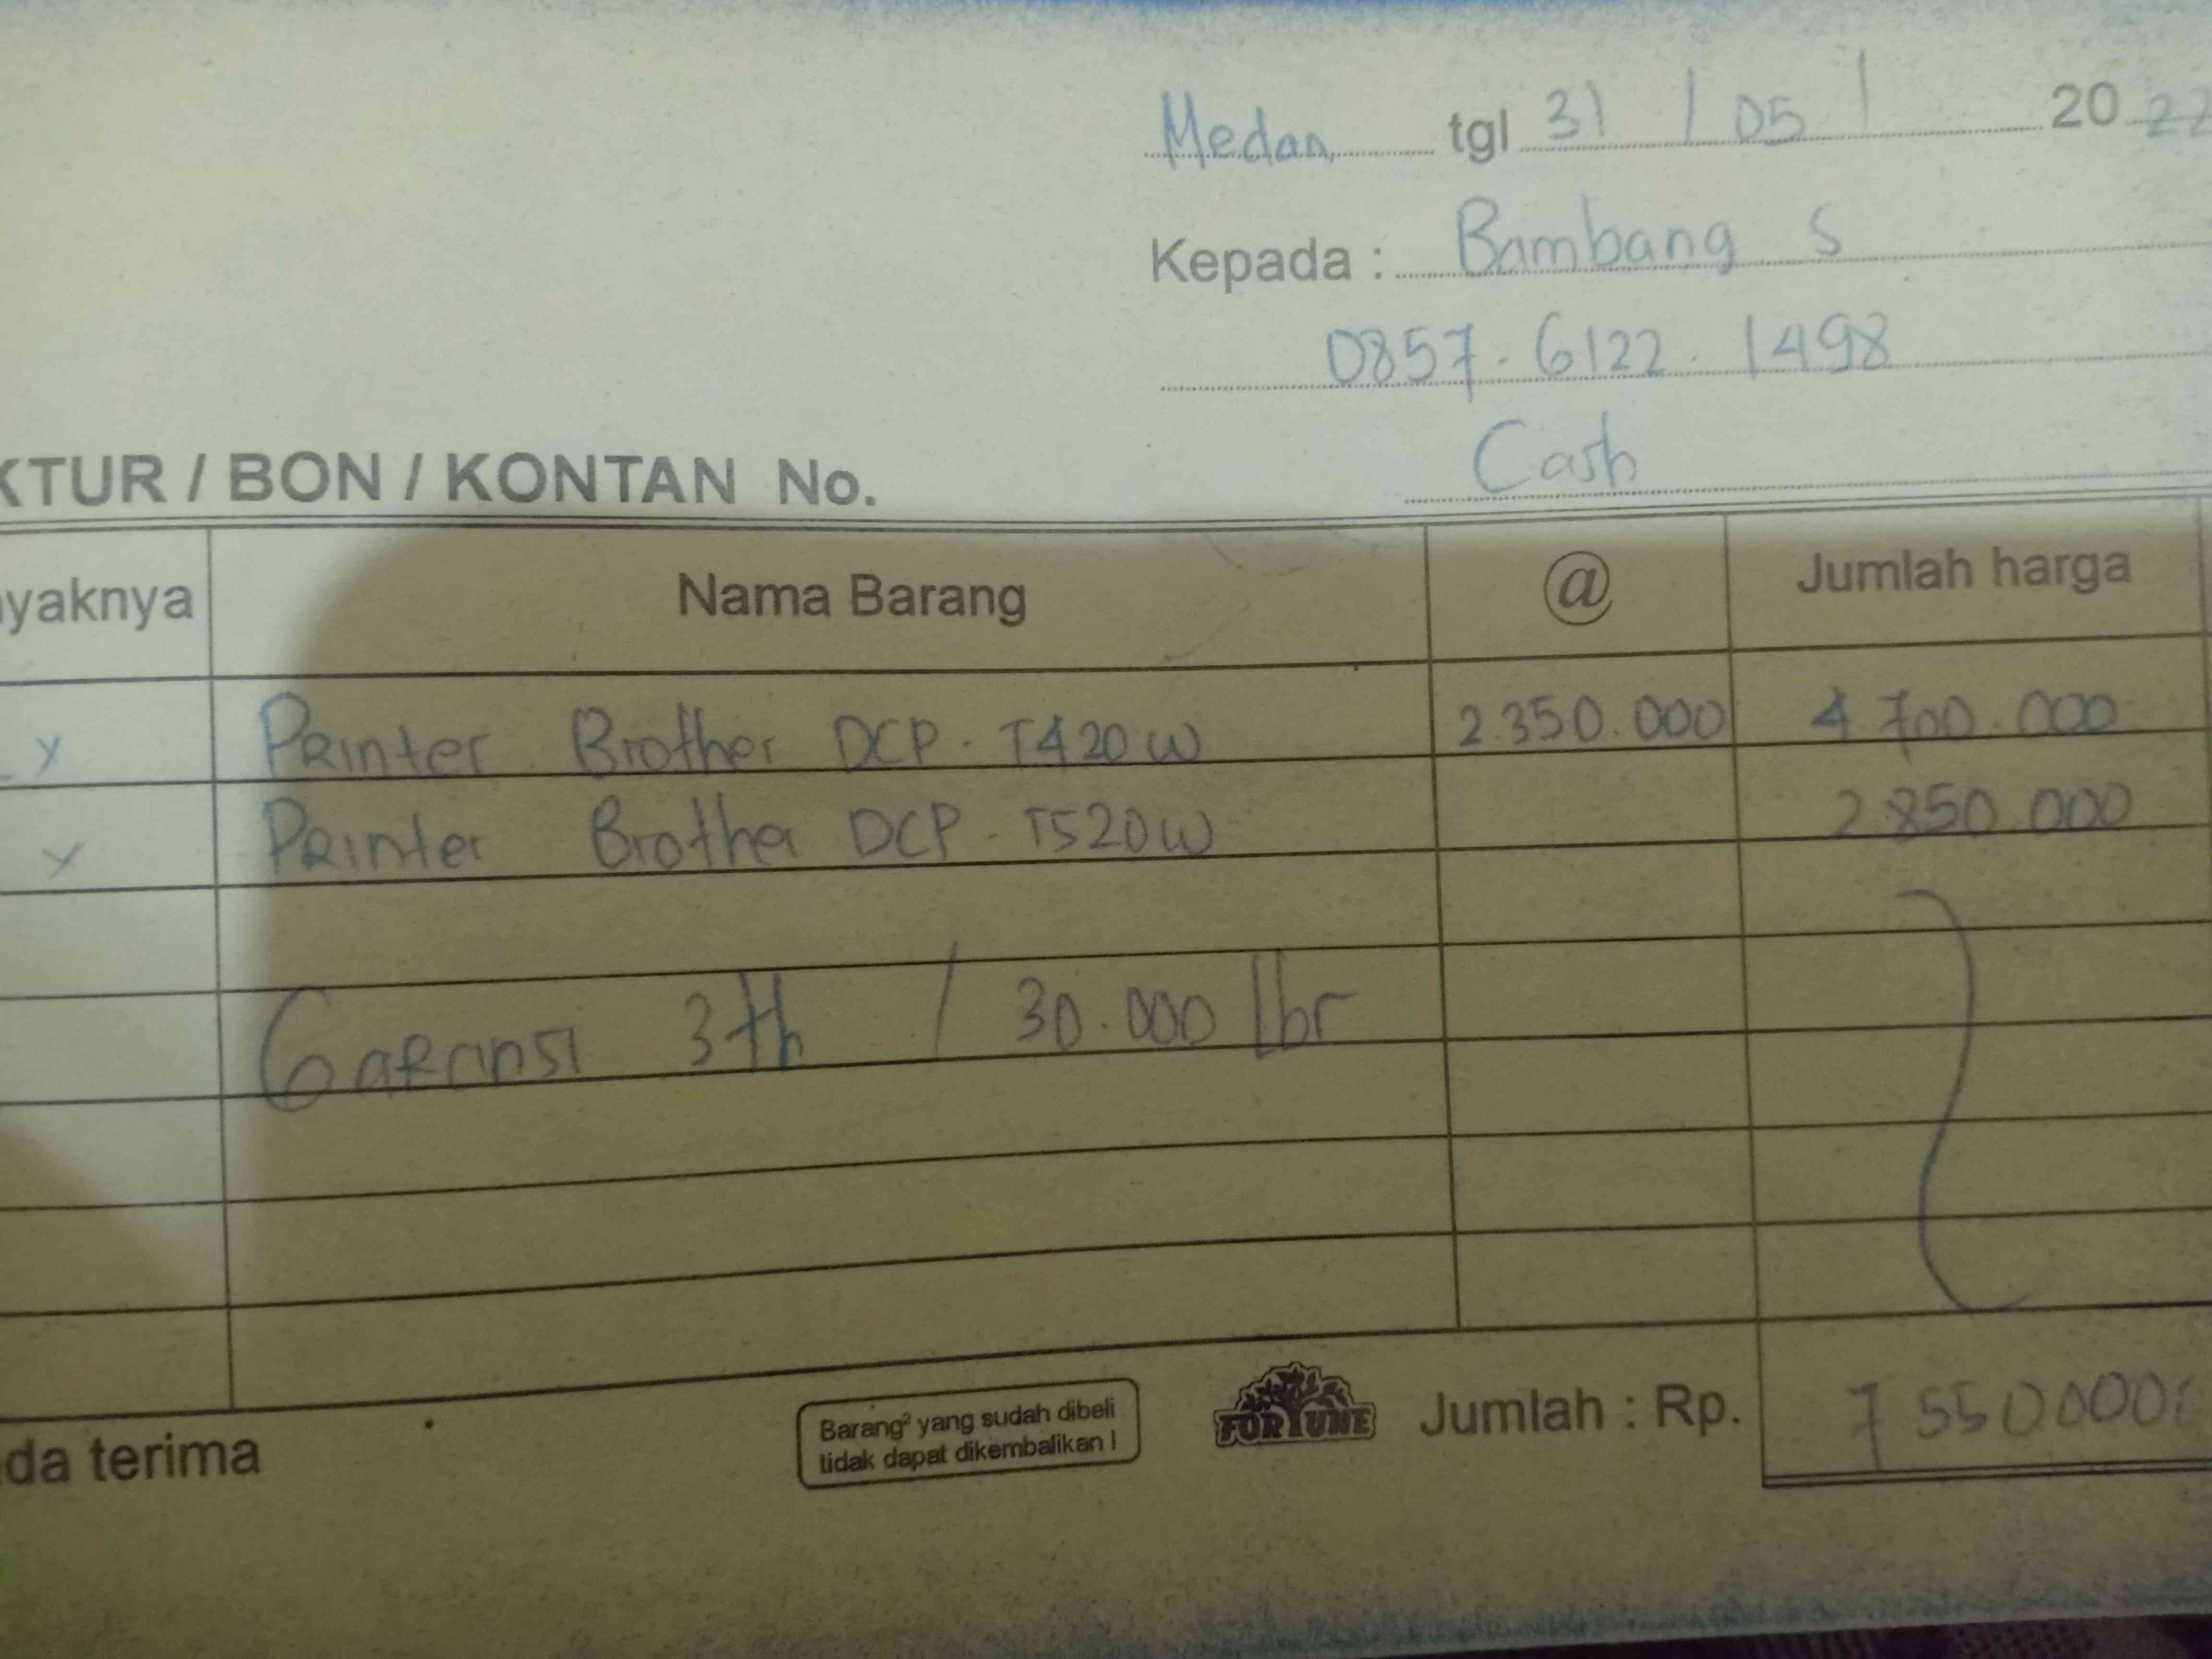 Medan, tgl 31 / 05 / 2022
Kepada : Bambang S
0857. 6122. 1498
Cash
KTUR / BON / KONTAN No.
yaknya Nama Barang @ Jumlah harga
x Printer Brother DCP - T420W 2.350.000 4.700.000
x Printer Brother DCP - T520W 2.850.000
Garansi 3th / 30.000 lbr
da terima
Barang² yang sudah dibeli
tidak dapat dikembalikan !
FORTUNE
Jumlah : Rp. 7.550.000